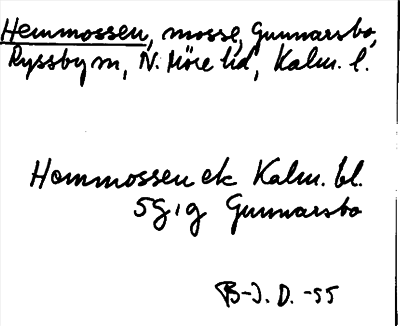 Hemmossen, mosse, Gunnarsbo,
Ryssby sn, N. Möre hd, Kalm. l.
Hommossen ek Kalm. bl.
5G1g Gunnarsbo
B-I. D. -55